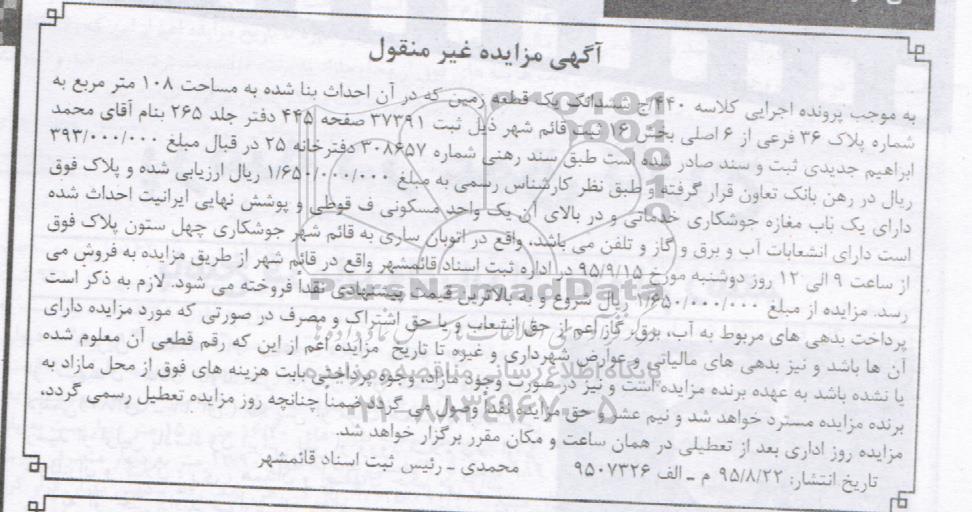 آگهی مزایده غیر منقول
به موجب پرونده اجرایی کلاسه ۴۴۰/ج ششدانگ یک قطعه زمین که در آن احداث بنا شده به مساحت ۱۰۸ متر مربع به
شماره پلاک ۳۶ فرعی از ۶ اصلی بخش ۱۶ ثبت قائم شهر ذیل ثبت ۳۷۳۹۱ صفحه ۴۴۵ دفتر جلد ۲۶۵ بنام آقای محمد
ابراهیم جدیدی ثبت و سند صادر شده است طبق سند رهنی شماره ۳۰۸۶۵۷ دفترخانه ۲۵ در قبال مبلغ ۳۹۳/۰۰۰/۰۰۰
ریال در رهن بانک تعاون قرار گرفته و طبق نظر کارشناس رسمی به مبلغ ۱/۶۵۰/۰۰۰/۰۰۰ ریال ارزیابی شده و پلاک فوق
دارای یک باب مغازه جوشکاری خدماتی و در بالای آن یک واحد مسکونی ف قوطی و پوشش نهایی ایرانیت احداث شده
است دارای انشعابات آب و برق و گاز و تلفن می باشد، واقع در اتوبان ساری به قائم شهر جوشکاری چهل ستون پلاک فوق
از ساعت ۹ الی ۱۲ روز دوشنبه مورخ ۹۵/۹/۱۵ در اداره ثبت اسناد قائمشهر واقع در قائم شهر از طریق مزایده به فروش می
رسد. مزایده از مبلغ ۱/۶۵۰/۰۰۰/۰۰۰ ریال شروع و به بالاترین قیمت پیشنهادی نقداً فروخته می شود. لازم به ذکر است
پرداخت بدهی های مربوط به آب، برق، گاز اعم از حق انشعاب و یا حق اشتراک و مصرف در صورتی که مورد مزایده دارای
آن ها باشد و نیز بدهی های مالیاتی و عوارض شهرداری و غیوه تا تاریخ مزایده اعم از این که رقم قطعی آن معلوم شده
یا نشده باشد به عهده برنده مزایده است و نیز در صورت وجود مازاد، وجوه پرداختی بابت هزینه های فوق از محل مازاد به
برنده مزایده مسترد خواهد شد و نیم عشر و حق مزایده نقداً وصول می گردد ضمناً چنانچه روز مزایده تعطیل رسمی گردد،
مزایده روز اداری بعد از تعطیلی در همان ساعت و مکان مقرر برگزار خواهد شد.
تاریخ انتشار: ۹۵/۸/۲۲ م ـ الف ۹۵۰۷۳۲۶ محمدی ـ رئیس ثبت اسناد قائمشهر
ParsNamadData
پایگاه اطلاع رسانی مناقصه و مزایده
۰۲۱-۸۸۳۴۹۶۷۰-۵